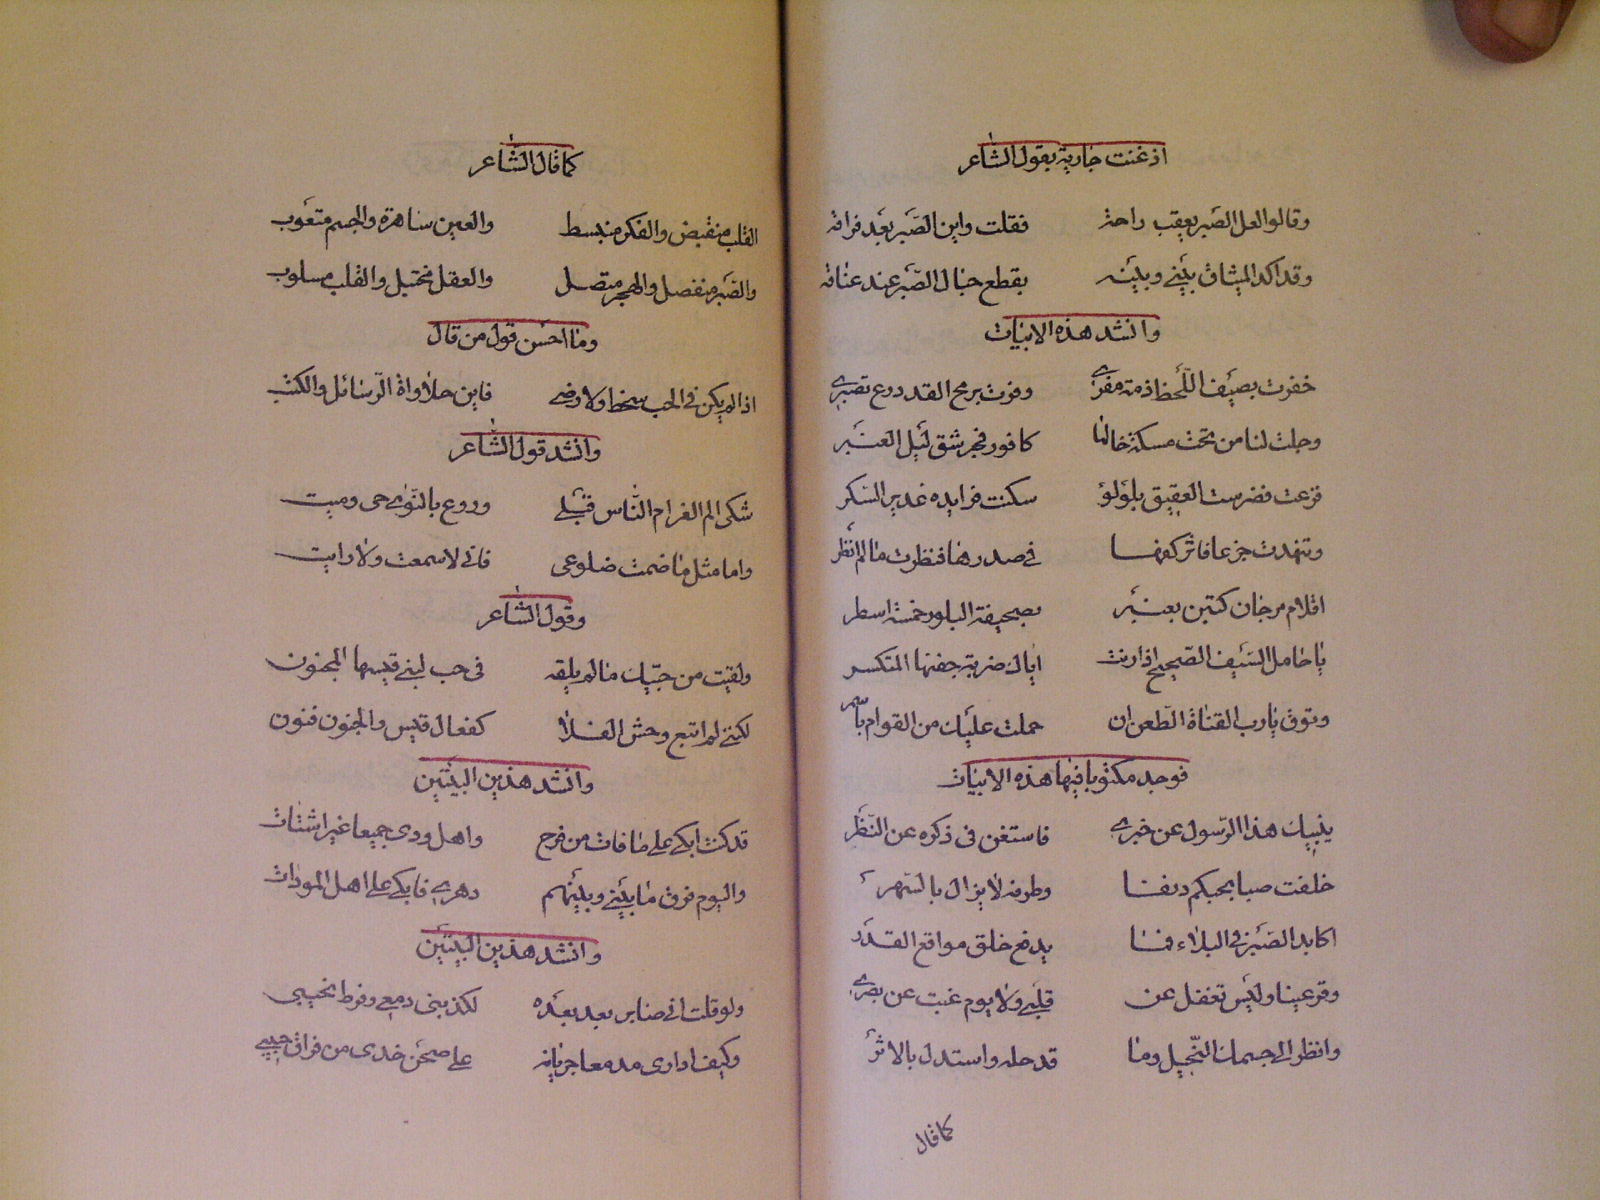 اذ غنت جارية بقول الشاعر
وقالوا لعل الصبر يعقب راحة فقلت واين الصبر بعد فراقه
وقد اكد الميثاق بيني وبينه بقطع حبال الصبر عند عناقه
وانشد هذه الابيات
خفرت بصيف اللحظ ذمة مغفري وفرت برمح القد درع تصبري
وجلت لنا من تحت مسكة خالها كافور فجر شق ليل العنبر
فزعت فضرست العقيق بلؤلؤ سكنت فرايده غدير السكر
وتنهدت جزعا فاثر كفها في صدرها فنظرت ما لم انظر
اقلام مرجان كتبن بعنبر بصحيفة البلور خمسة اسطر
يا حامل السيف الصحيح اذا رنت اياك ضربة جفنها المتكسر
وتوق يا رب القناة الطعن ان حملت عليك من القوام باسمر
فوجد مكتوبا فيها هذه الابيات
ينبيك هذا الرسول عن خبري فاستغن في ذكره عن النظر
خلفت صبا بحبكم دنفا وطرفه لا يزال بالسهر
اكابد الصبر في البلاء فما يدفع خلق مواقع القدر
وقر عينا وليس تغفل عن قلبي ولا يوم غبت عن بصري
وانظر الى جسمك النحيل وما قد حله واستدل بالاثر
كما قال
كما قال الشاعر
القلب منقبض والفكر منبسط والعين ساهرة والجسم متعوب
والصبر منفصل والهجر متصل والعقل مختبل والقلب مسلوب
وما احسن قول من قال
اذا لم يكن في الحب سخط ولا رضى فاين حلاواة الرسائل والكتب
وانشد قول الشاعر
شكى الم الغرام الناس قبلي وروع بالنوى حى وميت
واما مثل ما ضمت ضلوعى فاني لا سمعت ولا رايت
وقول الشاعر
ولقيت من حبيك ما لم يلقه فى حب لبنى قيسها المجنون
لكنني لم اتبع وحش الفلا كفعال قيس والجنون فنون
وانشد هذين البيتين
قد كنت ابكي على ما فات من فرح واهل ودى جميعا غير اشتات
واليوم فرق ما بيني وبينهم دهري فابكي على اهل المودات
وانشد هذين البيتين
ولو قلت اني صابر بعد بعده لكذبنى دمعي وفرط نحيبى
وكيف اوارى مدمعا جريانه على صحن خدى من فراق حبيبي